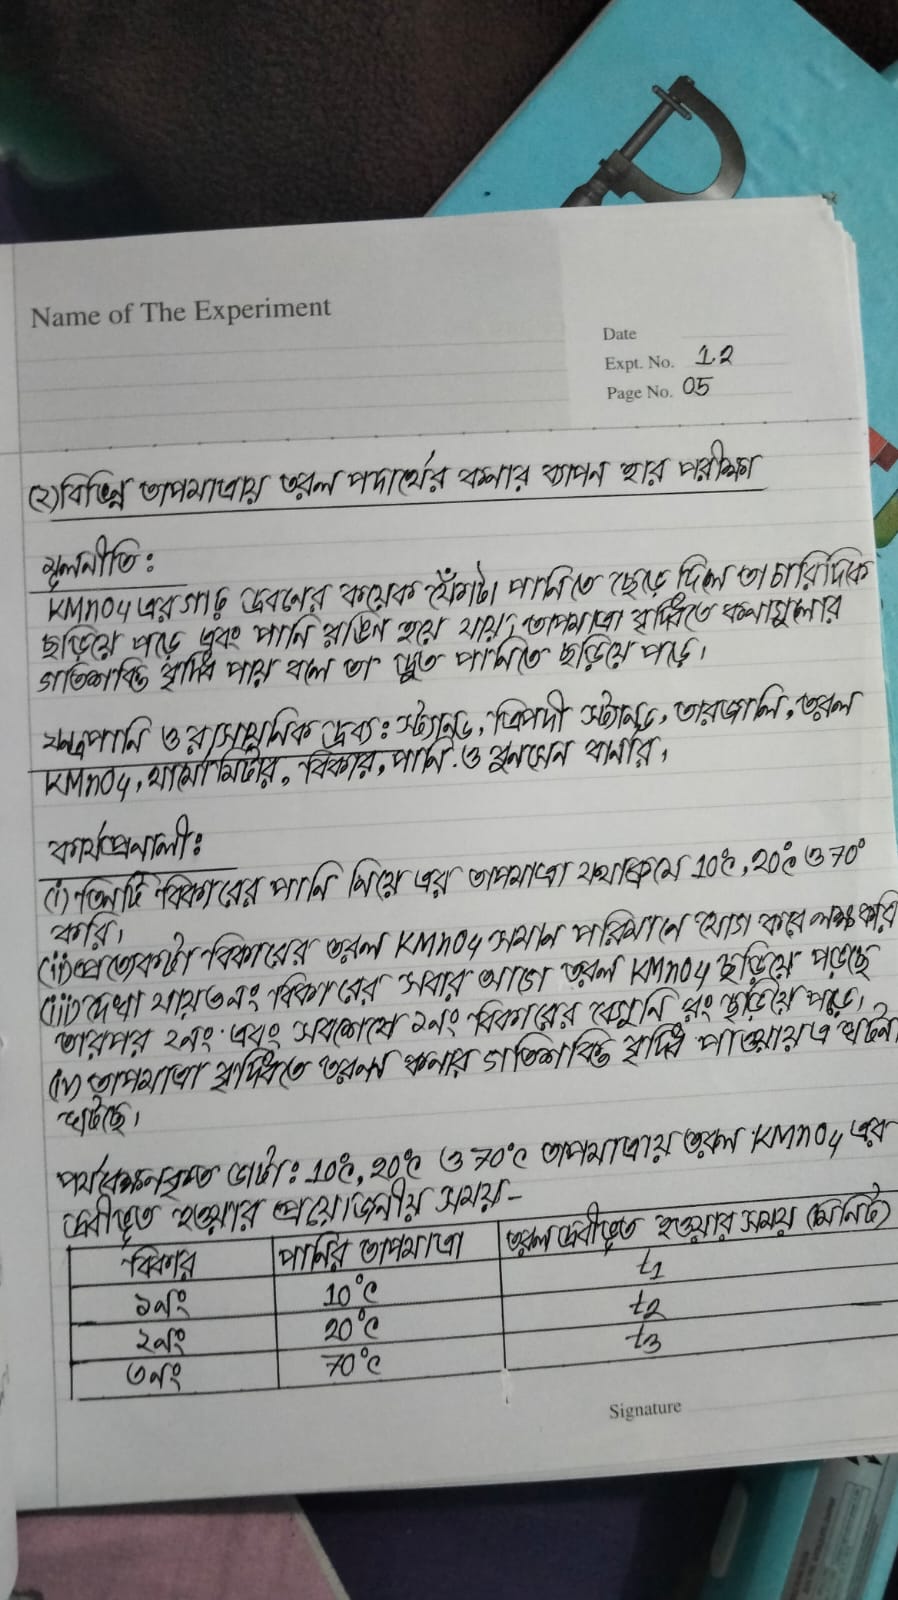 Name of The Experiment
Date
Expt. No. 1.2
Page No. 05
(২) বিভিন্ন তাপমাত্রায় তরল পদার্থের কনার ব্যাপন হার পরীক্ষা
মূলনীতি:
KMnO4 এর গাঢ় দ্রবনের কয়েক ফোঁটা পানিতে ছেড়ে দিলে তা চারিদিকে
ছড়িয়ে পড়ে এবং পানি রাঙিন হয়ে যায়, তাপমাত্রা বৃদ্ধিতে কনাগুলোর
গতিশক্তি বৃদ্ধি পায় বলে তা দ্রুত পানিতে ছড়িয়ে পড়ে।
যন্ত্রপানি ও রাসায়নিক দ্রব্য: স্ট্যান্ড, ত্রিপদী স্ট্যান্ড, তারজালি, তরল
KMnO4, থার্মোমিটার, বিকার, পানি ও বুনসেন বার্নার,
কার্যপ্রনালী:
(i) তিনটি বিকারের পানি নিয়ে এর তাপমাত্রা যথাক্রমে 10°c, 20°c ও 70°
করি,
(ii) প্রত্যেকটা বিকারের তরল KMnO4 সমান পরিমানে যোগ করে লক্ষ করি
(iii) দেখা যায় ৩নং বিকারের সবার আগে তরল KMnO4 ছড়িয়ে পড়ছে
তারপর ২নং এবং সবশেষে ১নং বিকারের বেগুনি রং ছড়িয়ে পড়ে,
(iv) তাপমাত্রা বৃদ্ধিতে তরল কনার গতিশক্তি বৃদ্ধি পাওয়ায় এ ঘটনা
ঘটছে।
পর্যবেক্ষনকৃত ডাটা: 10°c, 20°c ও 70°c তাপমাত্রায় তরল KMnO4 এর
দ্রবীভূত হওয়ার প্রয়োজনীয় সময়-
বিকার পানির তাপমাত্রা তরল দ্রবীভূত হওয়ার সময় (মিনিট)
১নং 10°c t1
২নং 20°c t2
৩নং 70°c t3
Signature